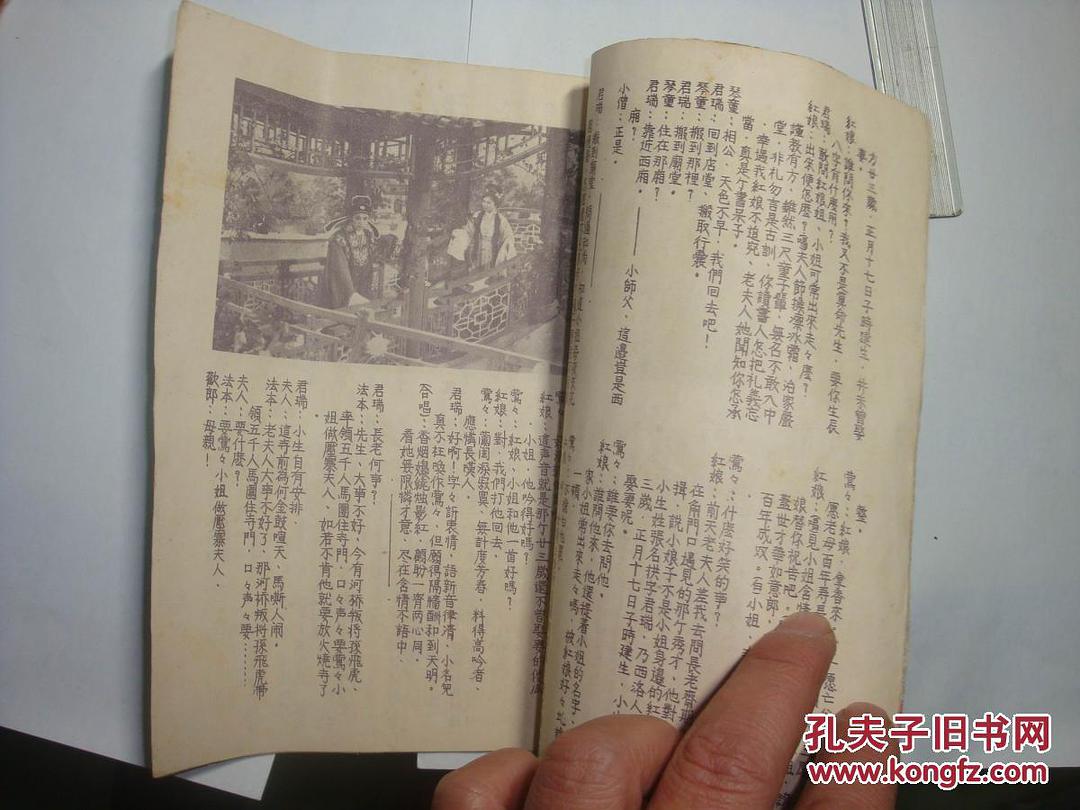 方廿三歲,正月十七日子時建生,并未曾娶
妻。
紅娘:誰問你來?我又不是算命先生,要你生辰
八字有什麽用?
君瑞:敢問紅娘姐,小姐可常出來走々麽?
紅娘:出來便怎麽?喎夫人節操凛冰霜,治家嚴
謹教有方,雖然三尺童子輩,無名不敢入中
堂,非礼勿言是古訓,你讀書人怎把礼義忘
,幸遇我紅娘不追究,老夫人她聞知你怎承
當,真是个書呆子。
琴童:相公,天色不早,我們回去吧!
君瑞:回到店堂,搬取行囊。
琴童:搬到那裡?
君瑞:搬到廟堂。
琴童:住在那廂?
君瑞:靠近西廂。
小師父,這邊豈是西
廂?
小僧:正是。
鶯々:紅娘,拿香來
愿老母百年寿長
紅娘:喎見小姐含情
娘替你祝告吧。
蓋世才華如意郎,
百年成双。
鶯々:什麽好笑的事?
紅娘:前天老夫人差我去問長老齊期
在角門口遇見的那个秀才,他對
揖,説小娘子不是小姐身邊的紅
小生姓張名拱字君瑞,乃西洛人
三歲,正月十七日子時建生,小
娶妻呢。
鶯々:誰要你去問他。
紅娘:誰問他來,他還提著小姐的名字
小姐常出來走々嗎,被紅娘好々地
小姐,他吟得好嗎?
紅娘:這声音就是那个廿三歲還不曾娶妻的傻
鶯々:紅娘,小姐和他一首好嗎?
紅娘:對,我們打他回去。
鶯々:蘭閨深寂寞,無計度芳春,料得高吟者,
應憐長嘆人。
君瑞:好啊!字々訴衷情,語新音律清,小名兒
真不枉喚作鶯々,但願得隔牆酬和到天明。
合唱:香烟爆銀燭影紅,顧盼一齊两心同,
看她無限憐才意,尽在含情不語中,
君瑞:長老何事?
法本:先生,大事不好,今有河桥叛将孫飛虎、
率領五千人馬圍住寺門,口々声々要鶯々小
姐做壓寨夫人,如若不肯他就要放火燒寺了
。
君瑞:小生自有安排。
夫人:這寺前為何金鼓喧天、馬嘶人闹。
法本:老夫人大事不好了,那河桥叛将孫飛虎带
領五千人馬圍住寺門,口々声々要……
夫人:要什麽?
法本:要鶯々小姐做壓寨夫人,
歡郎:母親!
孔夫子旧书网
www.kongfz.com